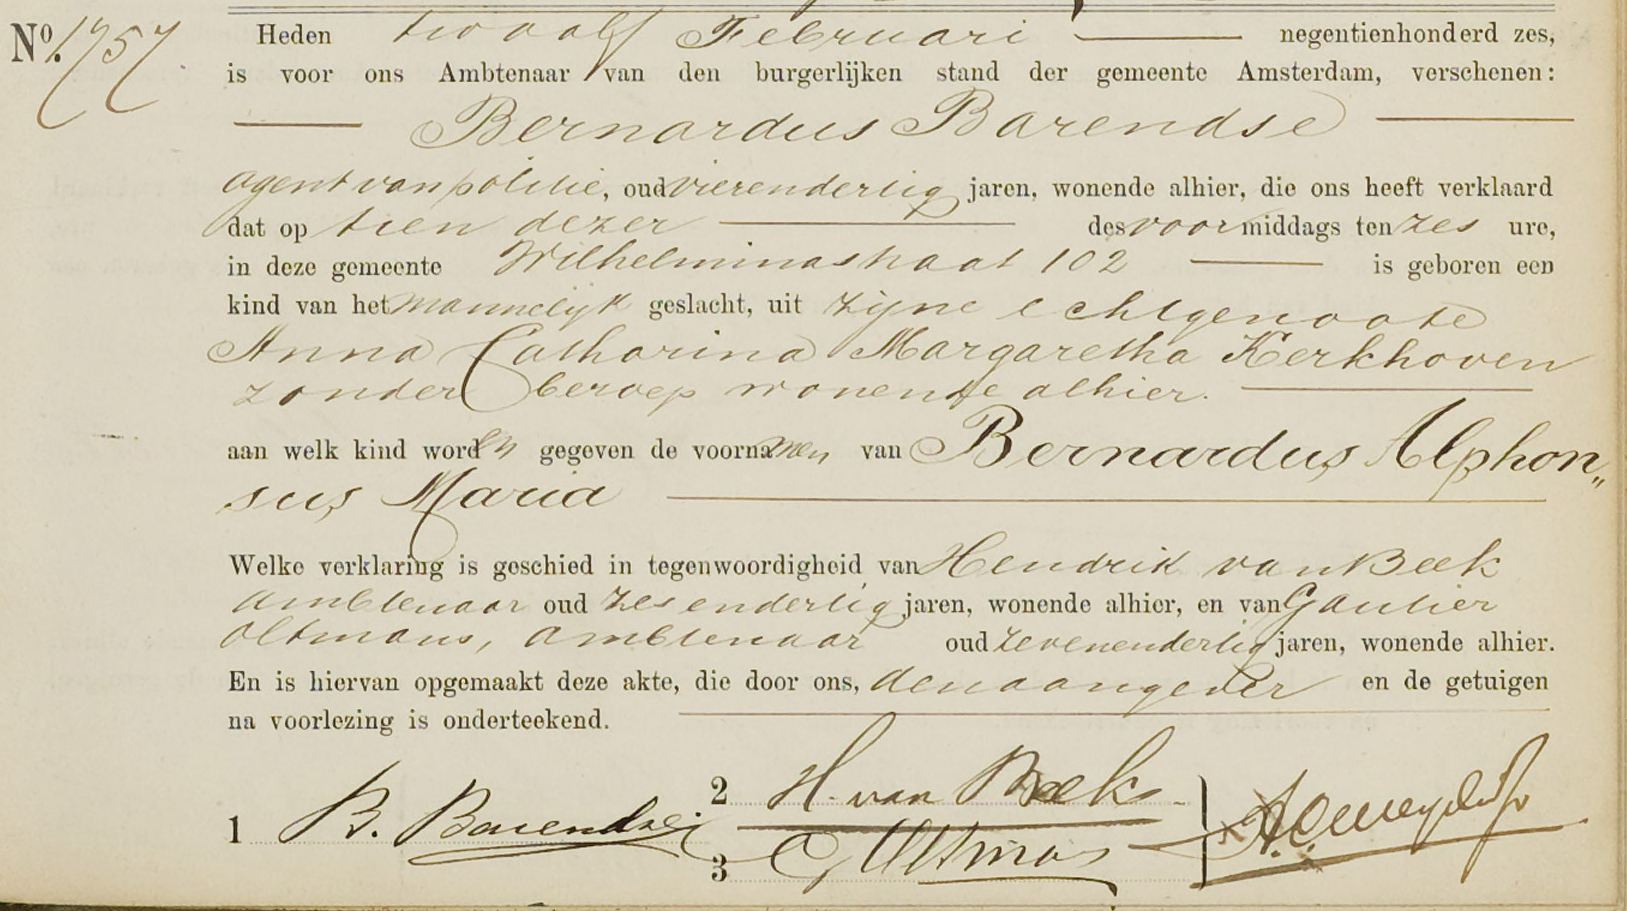 No. 1757 Heden twaalf Februari negentienhonderd zes,
is voor ons Ambtenaar van den burgerlijken stand der gemeente Amsterdam, verschenen:
Bernardus Barendse
agent van politie, oud vierendertig jaren, wonende alhier, die ons heeft verklaard
dat op tien dezer des voormiddags ten zes ure,
in deze gemeente Wilhelminastraat 102 is geboren een
kind van het mannelijk geslacht, uit zijne echtgenoote
Anna Catharina Margaretha Kerkhoven
zonder beroep wonende alhier.
aan welk kind worden gegeven de voornamen van Bernardus Alphon„
sus Maria
Welke verklaring is geschied in tegenwoordigheid van Hendrik van Beek
ambtenaar oud zesendertig jaren, wonende alhier, en van Gautier
Oltmans, ambtenaar oud zevenendertig jaren, wonende alhier.
En is hiervan opgemaakt deze akte, die door ons, den aangever en de getuigen
na voorlezing is onderteekend.
2 H. van Beek
1 B. Barendse
3 G Oltmans